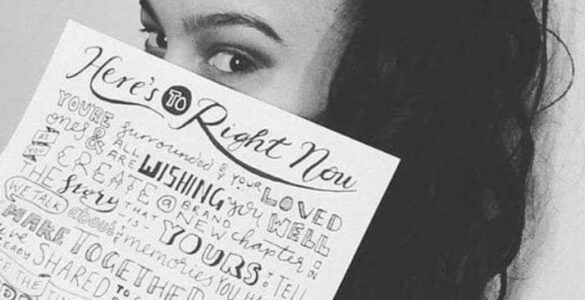 Here's TO Right Now
YOU'RE surrounded by YOUR LOVED
ones & ALL ARE WISHING you WELL
AS YOU CREATE a BRAND NEW chapter IN
THE Story THAT IS YOURS TO TELL
WE TALK about the memories YOU
MAKE TOGETHER
SHARED
THE